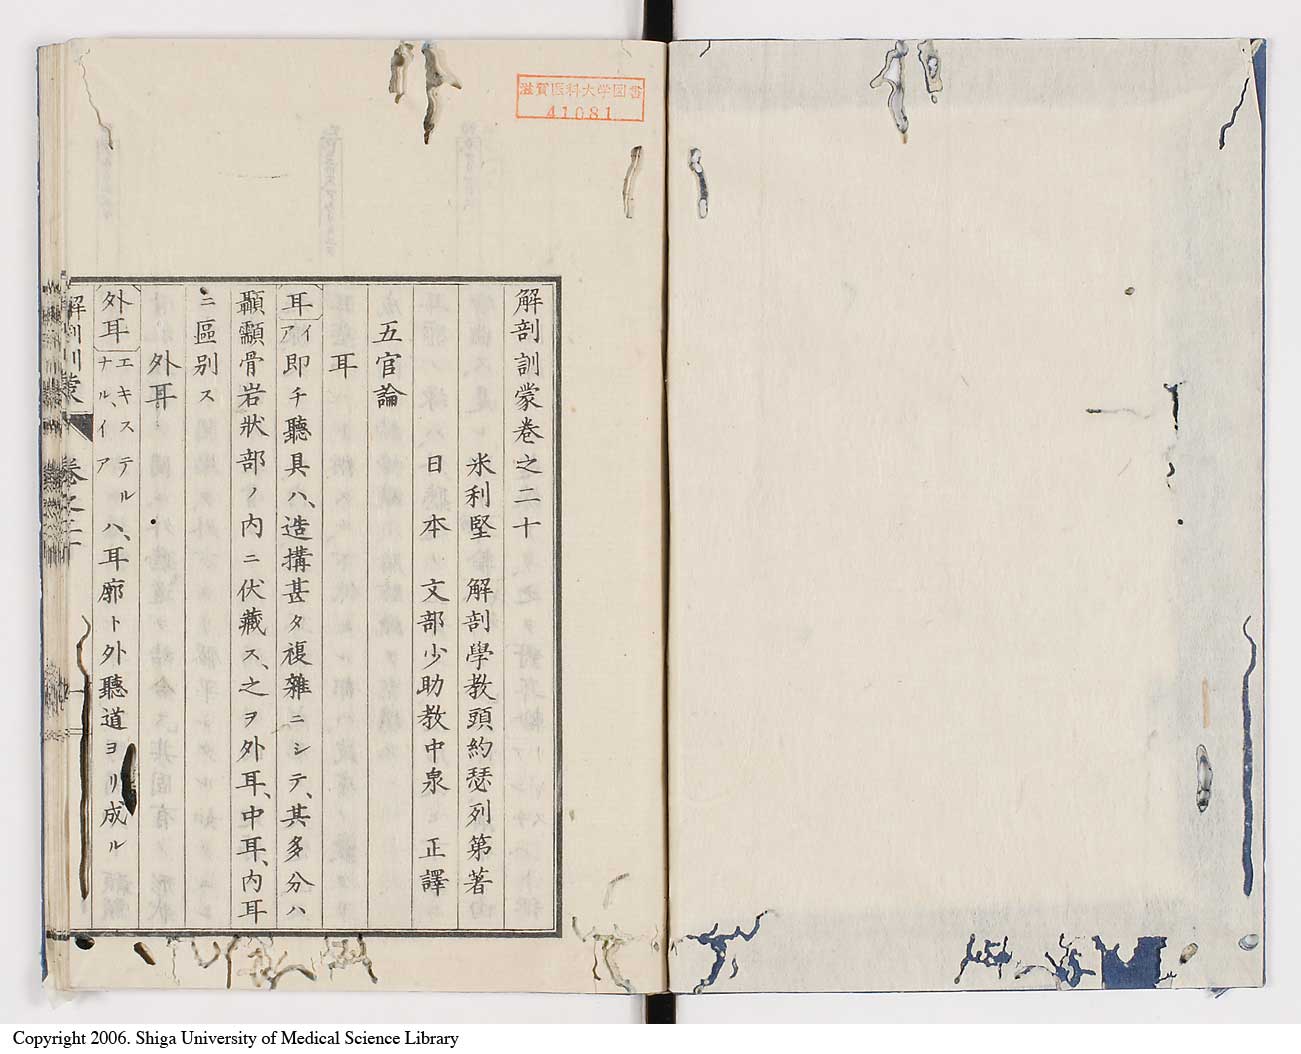 滋賀医科大学図書
41081
解剖訓蒙卷之二十
米利堅 解剖學教頭約瑟列第著
日本 文部少助教中泉 正譯
五官論
耳
耳 イア 即チ聽具ハ、造搆甚タ複雜ニシテ、其多分ハ
顳顬骨岩狀部ノ内ニ伏藏ス、之ヲ外耳、中耳、内耳
ニ區別ス
外耳
外耳 エキステルナル、イア ハ、耳廓ト外聽道ヨリ成ル
解剖訓蒙 卷之二十
Copyright 2006. Shiga University of Medical Science Library